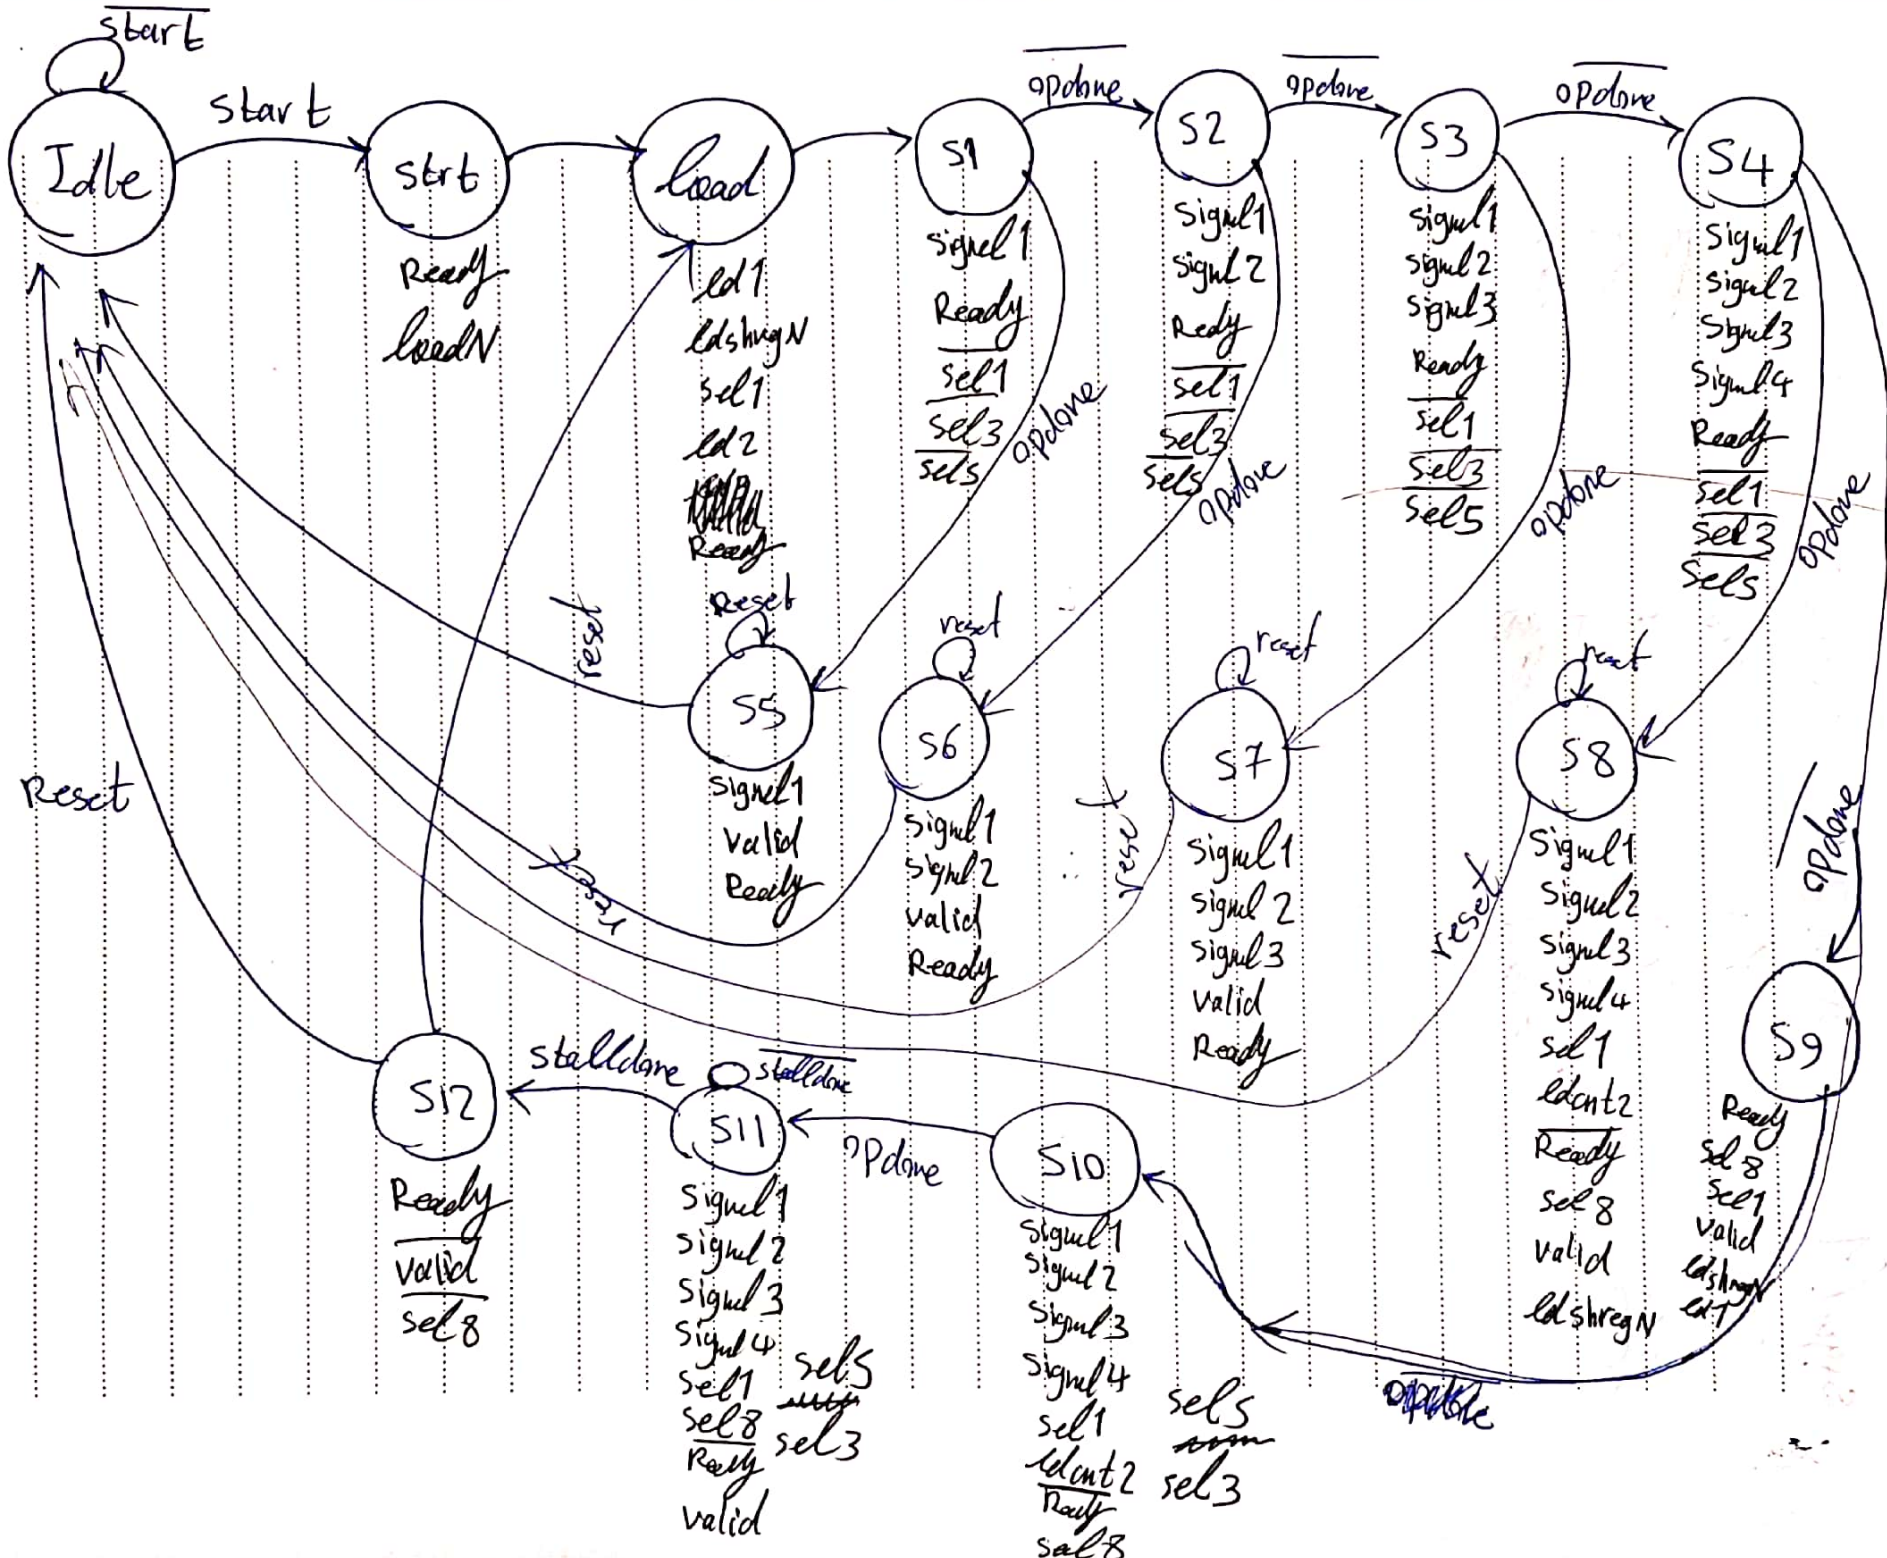 start
start
Idle
strt
Ready
loadN
load
ld1
ldshregN
sel1
ld2
Ready
S1
Signal1
Ready
sel1
sel3
sel5
opdone
opdone
S2
Signal1
Signal2
Redy
sel1
sel3
sel5
opdone
opdone
S3
Signal1
Signal2
Signal3
Ready
sel1
sel3
sel5
opdone
opdone
S4
Signal1
Signal2
Signal3
Signal4
Ready
sel1
sel3
sel5
opdone
opdone
Reset
S5
Signal1
valid
Ready
reset
reset
S6
Signal1
Signal2
valid
Ready
reset
reset
S7
Signal1
Signal2
Signal3
valid
Ready
reset
reset
S8
Signal1
Signal2
Signal3
Signal4
sel1
ldcnt2
Ready
sel8
valid
ldshregN
reset
S9
Ready
sel8
sel1
valid
ldshregN
S10
Signal1
Signal2
Signal3
Signal4
sel1
ldcnt2
Ready
sel8
sel5
sel3
opdone
stalldone
S11
Signal1
Signal2
Signal3
Signal4
sel1
sel8
Ready
valid
sel5
sel3
stalldone
S12
Ready
valid
sel8
Reset